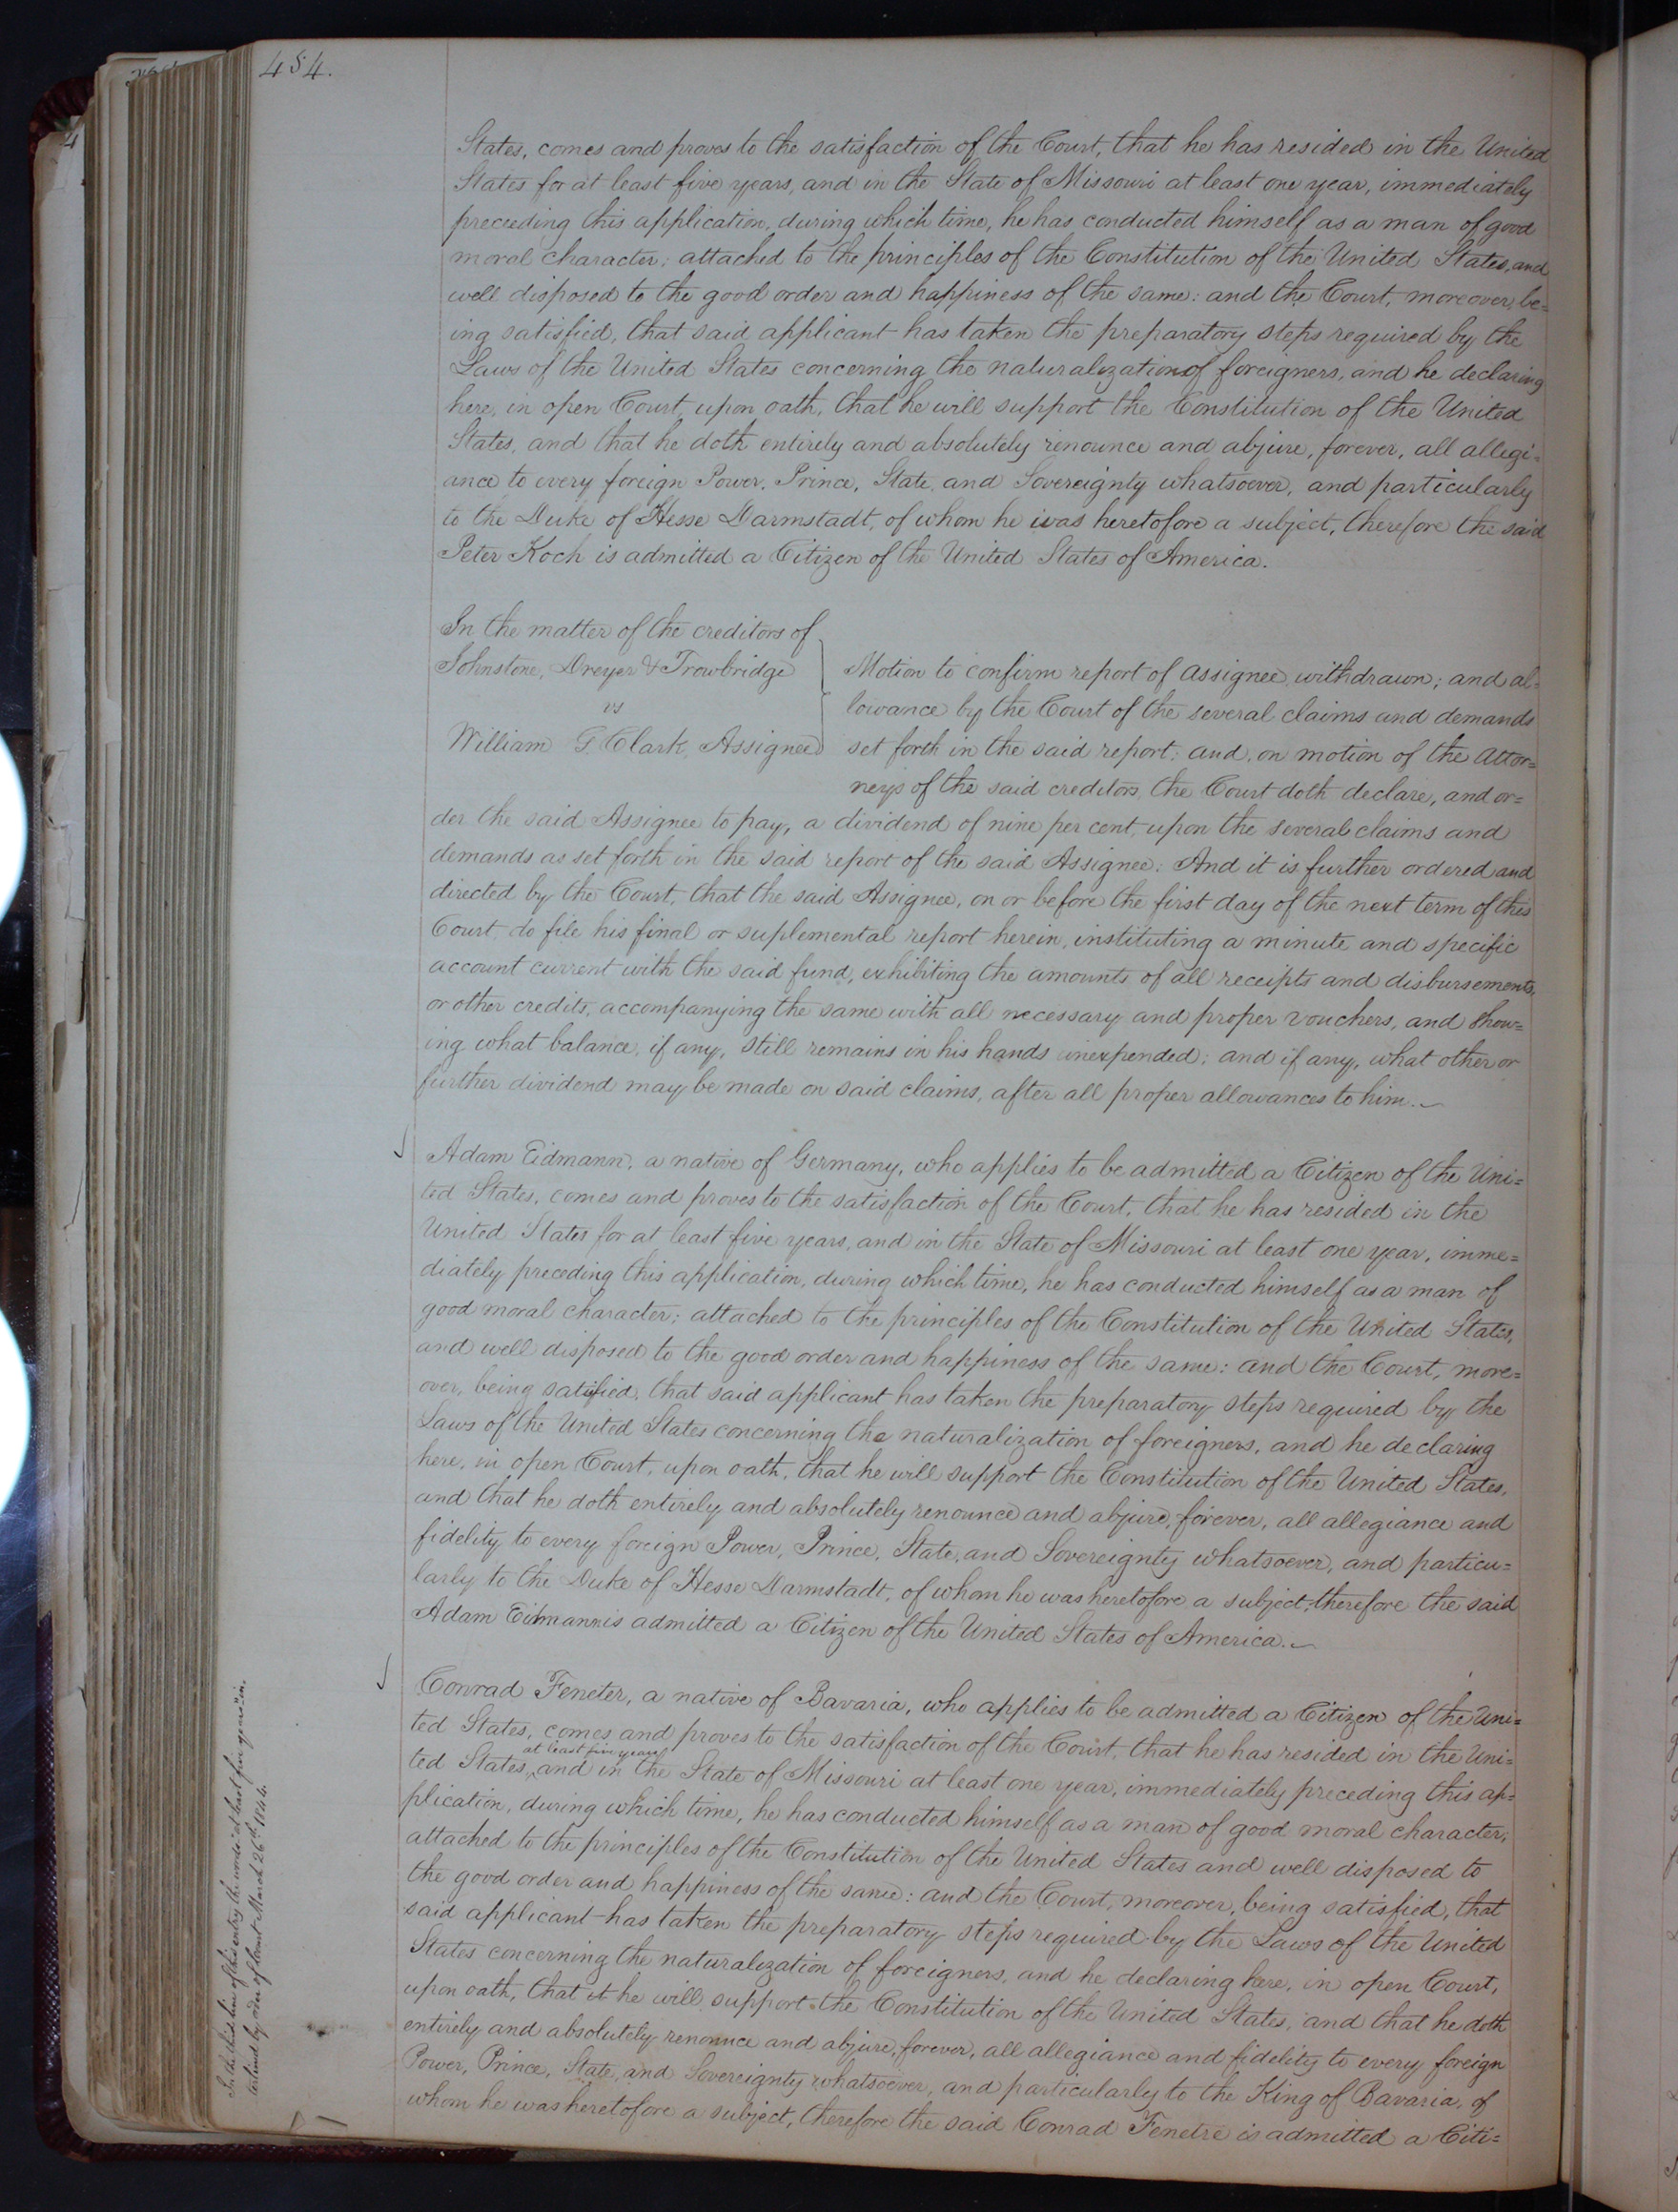 454.
States, comes and proves to the satisfaction of the Court, that he has resided in the United
States for at least five years, and in the State of Missouri at least one year, immediately
preceeding this application, during which time, he has conducted himself as a man of good
moral character; attached to the principles of the Constitution of the United States, and
well disposed to the good order and happiness of the same: and the Court, moreover, be=
ing satisfied, that said applicant has taken the preparatory steps required by the
Laws of the United States concerning the naturalization of foreigners, and he declaring
here, in open Court, upon oath, that he will support the Constitution of the United
States, and that he doth entirely and absolutely renounce and abjure, forever, all allegi=
ance to every foreign Power, Prince, State, and Sovereignty whatsoever, and particularly
to the Duke of Hesse Darmstadt, of whom he was heretofore a subject, therefore the said
Peter Koch is admitted a Citizen of the United States of America.
In the matter of the creditors of
Johnstone, Dreyer & Trowbridge
vs
William G Clark, Assignee
Motion to confirm report of assignee, withdrawn; and al=
lowance by the Court of the several claims and demands
set forth in the said report: and, on motion of the Attor=
neys of the said creditors, the Court doth declare, and or=
der the said Assignee to pay, a dividend of nine per cent, upon the several claims and
demands as set forth in the said report of the said Assignee: And it is further ordered and
directed by the Court, that the said Assignee, on or before the first day of the next term of this
Court, do file his final or suplemental report herein, instituting a minute and specific
account current with the said fund, exhibiting the amounts of all receipts and disbursements,
or other credits, accompanying the same with all necessary and proper vouchers, and show=
ing what balance, if any, still remains in his hands unexpended; and if any, what other or
further dividend may be made on said claims, after all proper allowances to him.
Adam Eidmann, a native of Germany, who applies to be admitted a Citizen of the Uni=
ted States, comes and proves to the satisfaction of the Court, that he has resided in the
United States for at least five years, and in the State of Missouri at least one year, imme=
diately preceding this application, during which time, he has conducted himself as a man of
good moral character; attached to the principles of the Constitution of the United States,
and well disposed to the good order and happiness of the same: and the Court, more=
over, being satisfied, that said applicant has taken the preparatory steps required by the
Laws of the United States concerning the naturalization of foreigners, and he declaring
here, in open Court, upon oath, that he will support the Constitution of the United States,
and that he doth entirely and absolutely renounce and abjure, forever, all allegiance and
fidelity to every foreign Power, Prince, State, and Sovereignty whatsoever, and particu=
larly to the Duke of Hesse Darmstadt, of whom he was heretofore a subject, therefore the said
Adam Eidmann is admitted a Citizen of the United States of America.
Conrad Feneter, a native of Bavaria, who applies to be admitted a Citizen of the Uni=
ted States, comes and proves to the satisfaction of the Court, that he has resided in the Uni=
at least five years
ted States, and in the State of Missouri at least one year, immediately preceding this ap=
plication, during which time, he has conducted himself as a man of good moral character;
attached to the principles of the Constitution of the United States and well disposed to
the good order and happiness of the same: and the Court, moreover, being satisfied, that
said applicant has taken the preparatory steps required by the Laws of the United
States concerning the naturalization of foreigners, and he declaring here, in open Court,
upon oath, that it he will support the Constitution of the United States, and that he doth
entirely and absolutely renounce and abjure, forever, all allegiance and fidelity to every foreign
Power, Prince, State, and Sovereignty whatsoever, and particularly to the King of Bavaria, of
whom he was heretofore a subject, therefore the said Conrad Fenetre is admitted a Citi=
In the third line of this entry the words "at least five years" in=
terlined by order of Court March 26th 1844.